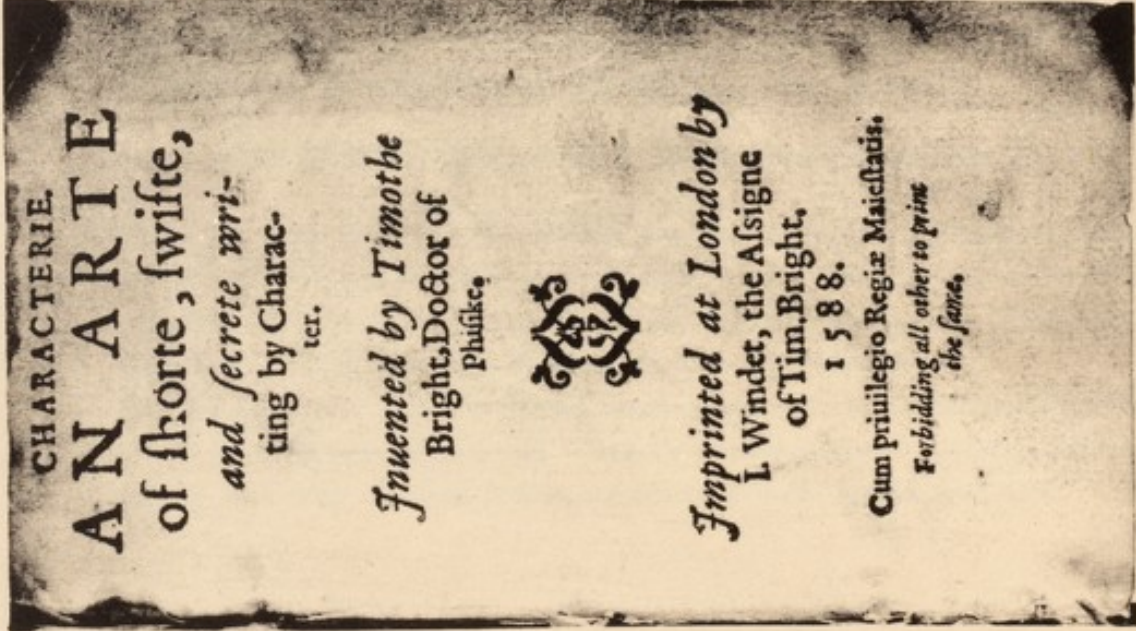 CHARACTERIE.
AN ARTE
of ſhorte, ſwifte,
and ſecrete wri-
ting by Charac-
ter.
Inuented by Timothe
Bright, Doctor of
Phiſike.
Imprinted at London by
I. Windet, the Aſsigne
of Tim. Bright.
1588.
Cum priuilegio Regiæ Maieſtatis.
Forbidding all other to print
the ſame.